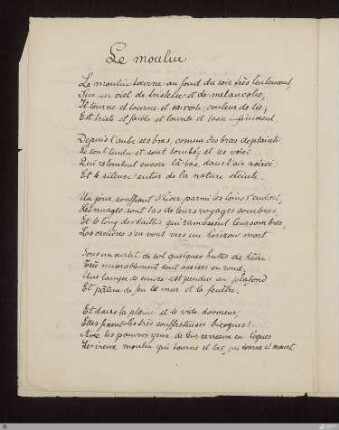 Le moulin
Le moulin tourne au fond du soir, très lentement,
Sur un ciel de tristesse et de mélancolie,
Il tourne et tourne et sa voile, couleur de lie,
Est triste et faible et lourde et lasse infiniment.
Depuis l'aube ses bras, comme des bras de plainte
Se sont tendus et sont tombés, et les voici
Qui retombent encore là-bas, dans l'air noirci
Et le silence entier de la nature éteinte.
Un jour souffrant d'hiver parmi les loins s'endort,
Les nuages sont las de leurs voyages sombres,
Et le long des taillis qui ramassent leurs ombres,
Les ornières s'en vont vers un horizon mort.
Sous un ourlet de sol quelques huttes de hêtre
Très misérablement sont assises en rond;
Une lampe de cuivre est pendue au plafond
Et patine de feu le mur et la fenêtre.
Et dans la plaine et le vide dormeur,
Elles fixent les très souffreteuses bicoques!
Avec les pauvres yeux de leurs carreaux en loques
Le vieux moulin qui tourne et las, qui tourne et meurt